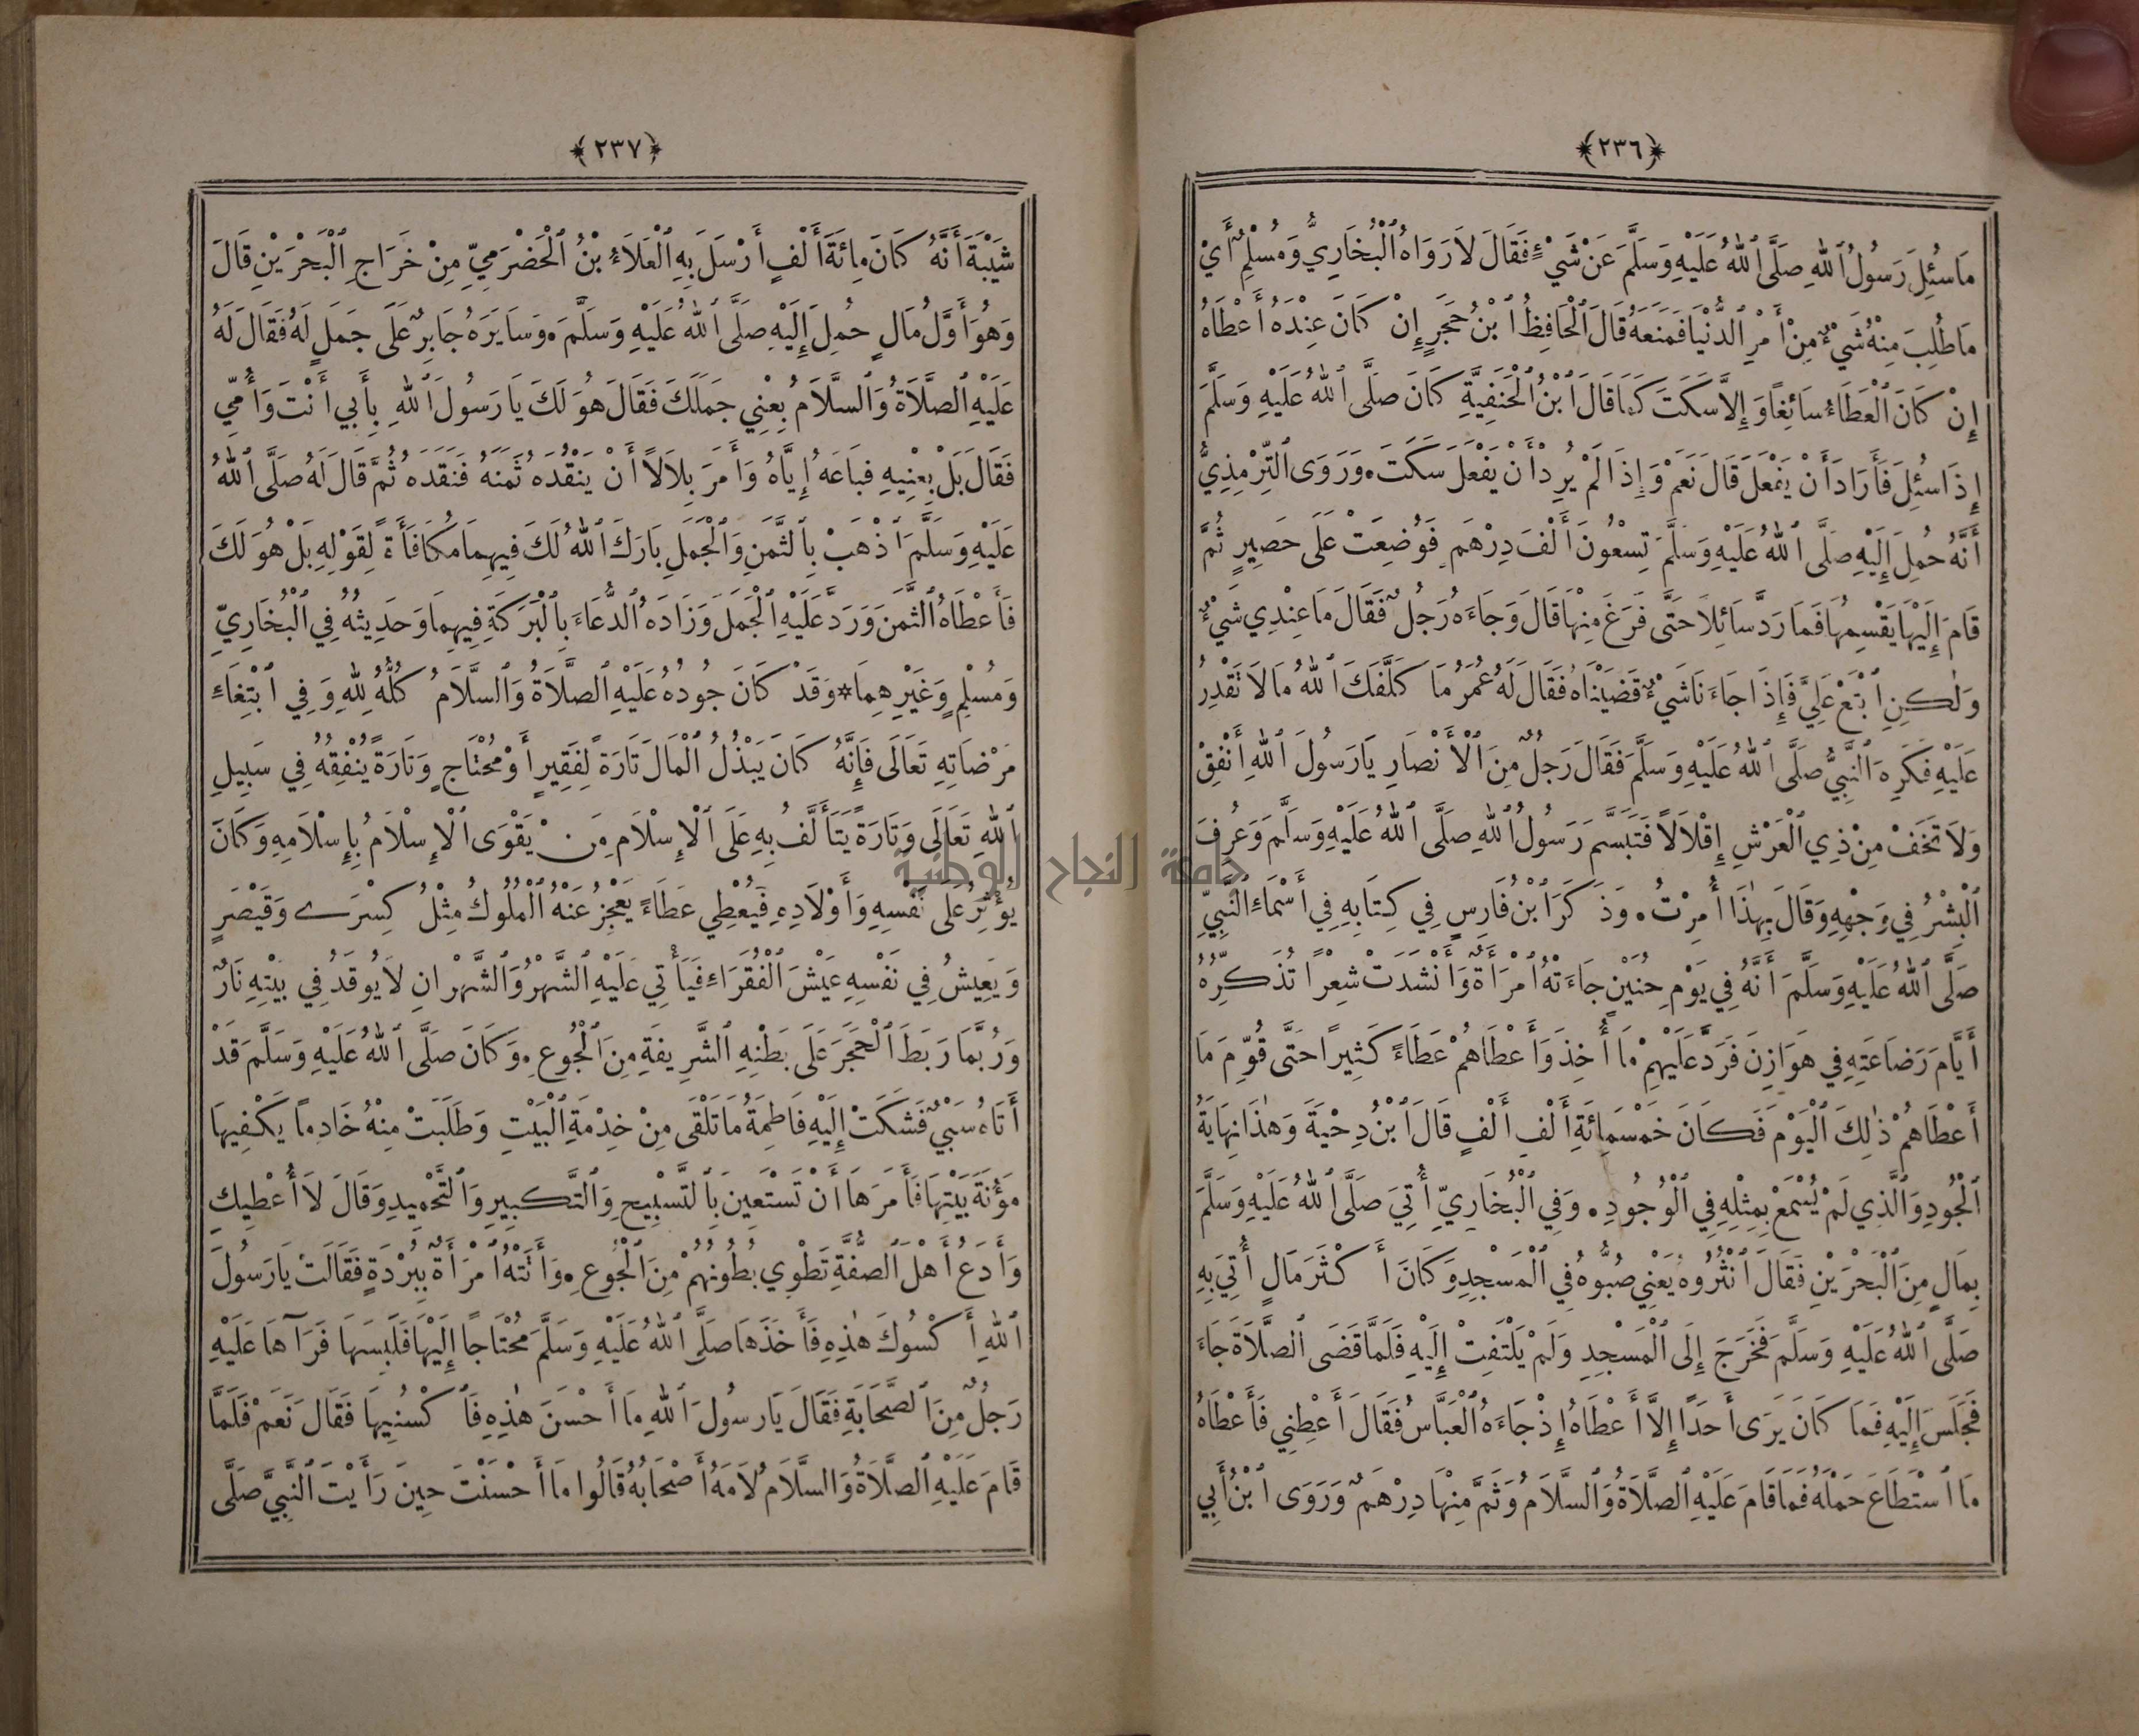 ﴿٢٣٦﴾
مَا سُئِلَ رَسُولُ ٱللهِ صَلَّى ٱللهُ عَلَيْهِ وَسَلَّمَ عَنْ شَيْءٍ فَقَالَ لاَ رَوَاهُ ٱلْبُخَارِيُّ وَمُسْلِمٌ أَيْ
مَا طُلِبَ مِنْهُ شَيْءٌ مِنْ أَمْرِ ٱلدُّنْيَا فَمَنَعَهُ قَالَ ٱلْحَافِظُ ٱبْنُ حَجَرٍ إِنْ كَانَ عِنْدَهُ أَعْطَاهُ
إِنْ كَانَ ٱلْعَطَاءُ سَائِغًا وَإِلاَّ سَكَتَ كَمَا قَالَ ٱبْنُ ٱلْحَنَفِيَّةِ كَانَ صَلَّى ٱللهُ عَلَيْهِ وَسَلَّمَ
إِذَا سُئِلَ فَأَرَادَ أَنْ يَفْعَلَ قَالَ نَعَمْ وَإِذَا لَمْ يُرِدْ أَنْ يَفْعَلَ سَكَتَ. وَرَوَى ٱلتِّرْمِذِيُّ
أَنَّهُ حُمِلَ إِلَيْهِ صَلَّى ٱللهُ عَلَيْهِ وَسَلَّمَ تِسْعُونَ أَلْفَ دِرْهَمٍ فَوُضِعَتْ عَلَى حَصِيرٍ ثُمَّ
قَامَ إِلَيْهَا يَقْسِمُهَا فَمَا رَدَّ سَائِلاً حَتَّى فَرَغَ مِنْهَا قَالَ وَجَاءَهُ رَجُلٌ فَقَالَ مَا عِنْدِي شَيْءٌ
وَلٰكِنِ ٱبْتَعْ عَلَيَّ فَإِذَا جَاءَنَا شَيْءٌ قَضَيْنَاهُ فَقَالَ لَهُ عُمَرُ مَا كَلَّفَكَ ٱللهُ مَا لاَ تَقْدِرُ
عَلَيْهِ فَكَرِهَ ٱلنَّبِيُّ صَلَّى ٱللهُ عَلَيْهِ وَسَلَّمَ فَقَالَ رَجُلٌ مِنَ ٱلْأَنْصَارِ يَا رَسُولَ ٱللهِ أَنْفِقْ
وَلاَ تَخَفْ مِنْ ذِي ٱلْعَرْشِ إِقْلاَلاً فَتَبَسَّمَ رَسُولُ ٱللهِ صَلَّى ٱللهُ عَلَيْهِ وَسَلَّمَ وَعُرِفَ
ٱلْبِشْرُ فِي وَجْهِهِ وَقَالَ بِهٰذَا أُمِرْتُ. وَذَكَرَ ٱبْنُ فَارِسٍ فِي كِتَابِهِ فِي أَسْمَاءِ ٱلنَّبِيِّ
صَلَّى ٱللهُ عَلَيْهِ وَسَلَّمَ أَنَّهُ فِي يَوْمِ حُنَيْنٍ جَاءَتْهُ ٱمْرَأَةٌ وَأَنْشَدَتْ شِعْرًا تُذَكِّرُهُ
أَيَّامَ رَضَاعَتِهِ فِي هَوَازِنَ فَرَدَّ عَلَيْهِمْ مَا أُخِذَ وَأَعْطَاهُمْ عَطَاءً كَثِيرًا حَتَّى قُوِّمَ مَا
أَعْطَاهُمْ ذٰلِكَ ٱلْيَوْمَ فَكَانَ خَمْسَمِائَةِ أَلْفِ أَلْفٍ قَالَ ٱبْنُ دِحْيَةَ وَهٰذَا نِهَايَةُ
ٱلْجُودِ وَٱلَّذِي لَمْ يُسْمَعْ بِمِثْلِهِ فِي ٱلْوُجُودِ. وَفِي ٱلْبُخَارِيِّ أُتِيَ صَلَّى ٱللهُ عَلَيْهِ وَسَلَّمَ
بِمَالٍ مِنَ ٱلْبَحْرَيْنِ فَقَالَ ٱنْثُرُوهُ يَعْنِي صُبُّوهُ فِي ٱلْمَسْجِدِ وَكَانَ أَكْثَرَ مَالٍ أُتِيَ بِهِ
صَلَّى ٱللهُ عَلَيْهِ وَسَلَّمَ فَخَرَجَ إِلَى ٱلْمَسْجِدِ وَلَمْ يَلْتَفِتْ إِلَيْهِ فَلَمَّا قَضَى ٱلصَّلاَةَ جَاءَ
فَجَلَسَ إِلَيْهِ فَمَا كَانَ يَرَى أَحَدًا إِلاَّ أَعْطَاهُ إِذْ جَاءَهُ ٱلْعَبَّاسُ فَقَالَ أَعْطِنِي فَأَعْطَاهُ
مَا ٱسْتَطَاعَ حَمْلَهُ فَمَا قَامَ عَلَيْهِ ٱلصَّلاَةُ وَٱلسَّلاَمُ وَثَمَّ مِنْهَا دِرْهَمٌ وَرَوَى ٱبْنُ أَبِي
﴿٢٣٧﴾
شَيْبَةَ أَنَّهُ كَانَ مِائَةَ أَلْفٍ أَرْسَلَ بِهِ ٱلْعَلاَءُ بْنُ ٱلْحَضْرَمِيِّ مِنْ خَرَاجِ ٱلْبَحْرَيْنِ قَالَ
وَهُوَ أَوَّلُ مَالٍ حُمِلَ إِلَيْهِ صَلَّى ٱللهُ عَلَيْهِ وَسَلَّمَ. وَسَايَرَهُ جَابِرٌ عَلَى جَمَلٍ لَهُ فَقَالَ لَهُ
عَلَيْهِ ٱلصَّلاَةُ وَٱلسَّلاَمُ بِعْنِي جَمَلَكَ فَقَالَ هُوَ لَكَ يَا رَسُولَ ٱللهِ بِأَبِي أَنْتَ وَأُمِّي
فَقَالَ بَلْ بِعْنِيهِ فَبَاعَهُ إِيَّاهُ وَأَمَرَ بِلاَلاً أَنْ يَنْقُدَهُ ثَمَنَهُ فَنَقَدَهُ ثُمَّ قَالَ لَهُ صَلَّى ٱللهُ
عَلَيْهِ وَسَلَّمَ ٱذْهَبْ بِٱلثَّمَنِ وَٱلْجَمَلِ بَارَكَ ٱللهُ لَكَ فِيهِمَا مُكَافَأَةً لِقَوْلِهِ بَلْ هُوَ لَكَ
فَأَعْطَاهُ ٱلثَّمَنَ وَرَدَّ عَلَيْهِ ٱلْجَمَلَ وَزَادَهُ ٱلدُّعَاءَ بِٱلْبَرَكَةِ فِيهِمَا وَحَدِيثُهُ فِي ٱلْبُخَارِيِّ
وَمُسْلِمٍ وَغَيْرِهِمَا* وَقَدْ كَانَ جُودُهُ عَلَيْهِ ٱلصَّلاَةُ وَٱلسَّلاَمُ كُلُّهُ لِلهِ وَفِي ٱبْتِغَاءِ
مَرْضَاتِهِ تَعَالَى فَإِنَّهُ كَانَ يَبْذُلُ ٱلْمَالَ تَارَةً لِفَقِيرٍ أَوْ مُحْتَاجٍ وَتَارَةً يُنْفِقُهُ فِي سَبِيلِ
ٱللهِ تَعَالَى وَتَارَةً يَتَأَلَّفُ بِهِ عَلَى ٱلْإِسْلاَمِ مَنْ يَقْوَى ٱلْإِسْلاَمُ بِإِسْلاَمِهِ وَكَانَ
يُؤْثِرُ عَلَى نَفْسِهِ وَأَوْلاَدِهِ فَيُعْطِي عَطَاءً يَعْجِزُ عَنْهُ ٱلْمُلُوكُ مِثْلُ كِسْرَى وَقَيْصَرٍ
وَيَعِيشُ فِي نَفْسِهِ عَيْشَ ٱلْفُقَرَاءِ فَيَأْتِي عَلَيْهِ ٱلشَّهْرُ وَٱلشَّهْرَانِ لاَ يُوقَدُ فِي بَيْتِهِ نَارٌ
وَرُبَّمَا رَبَطَ ٱلْحَجَرَ عَلَى بَطْنِهِ ٱلشَّرِيفَةِ مِنَ ٱلْجُوعِ. وَكَانَ صَلَّى ٱللهُ عَلَيْهِ وَسَلَّمَ قَدْ
أَتَاهُ سَبْيٌ فَشَكَتْ إِلَيْهِ فَاطِمَةُ مَا تَلْقَى مِنْ خِدْمَةِ ٱلْبَيْتِ وَطَلَبَتْ مِنْهُ خَادِمًا يَكْفِيهَا
مَؤُنَةَ بَيْتِهَا فَأَمَرَهَا أَنْ تَسْتَعِينَ بِٱلتَّسْبِيحِ وَٱلتَّكْبِيرِ وَٱلتَّحْمِيدِ وَقَالَ لاَ أُعْطِيكِ
وَأَدَعُ أَهْلَ ٱلصُّفَّةِ تَطْوِي بُطُونُهُمْ مِنَ ٱلْجُوعِ. وَأَتَتْهُ ٱمْرَأَةٌ بِبُرْدَةٍ فَقَالَتْ يَا رَسُولَ
ٱللهِ أَكْسُوكَ هٰذِهِ فَأَخَذَهَا صَلَّى ٱللهُ عَلَيْهِ وَسَلَّمَ مُحْتَاجًا إِلَيْهَا فَلَبِسَهَا فَرَآهَا عَلَيْهِ
رَجُلٌ مِنَ ٱلصَّحَابَةِ فَقَالَ يَا رَسُولَ ٱللهِ مَا أَحْسَنَ هٰذِهِ فَٱكْسُنِيهَا فَقَالَ نَعَمْ فَلَمَّا
قَامَ عَلَيْهِ ٱلصَّلاَةُ وَٱلسَّلاَمُ لاَمَهُ أَصْحَابُهُ قَالُوا مَا أَحْسَنْتَ حِينَ رَأَيْتَ ٱلنَّبِيَّ صَلَّى
جامعة النجاح الوطنية